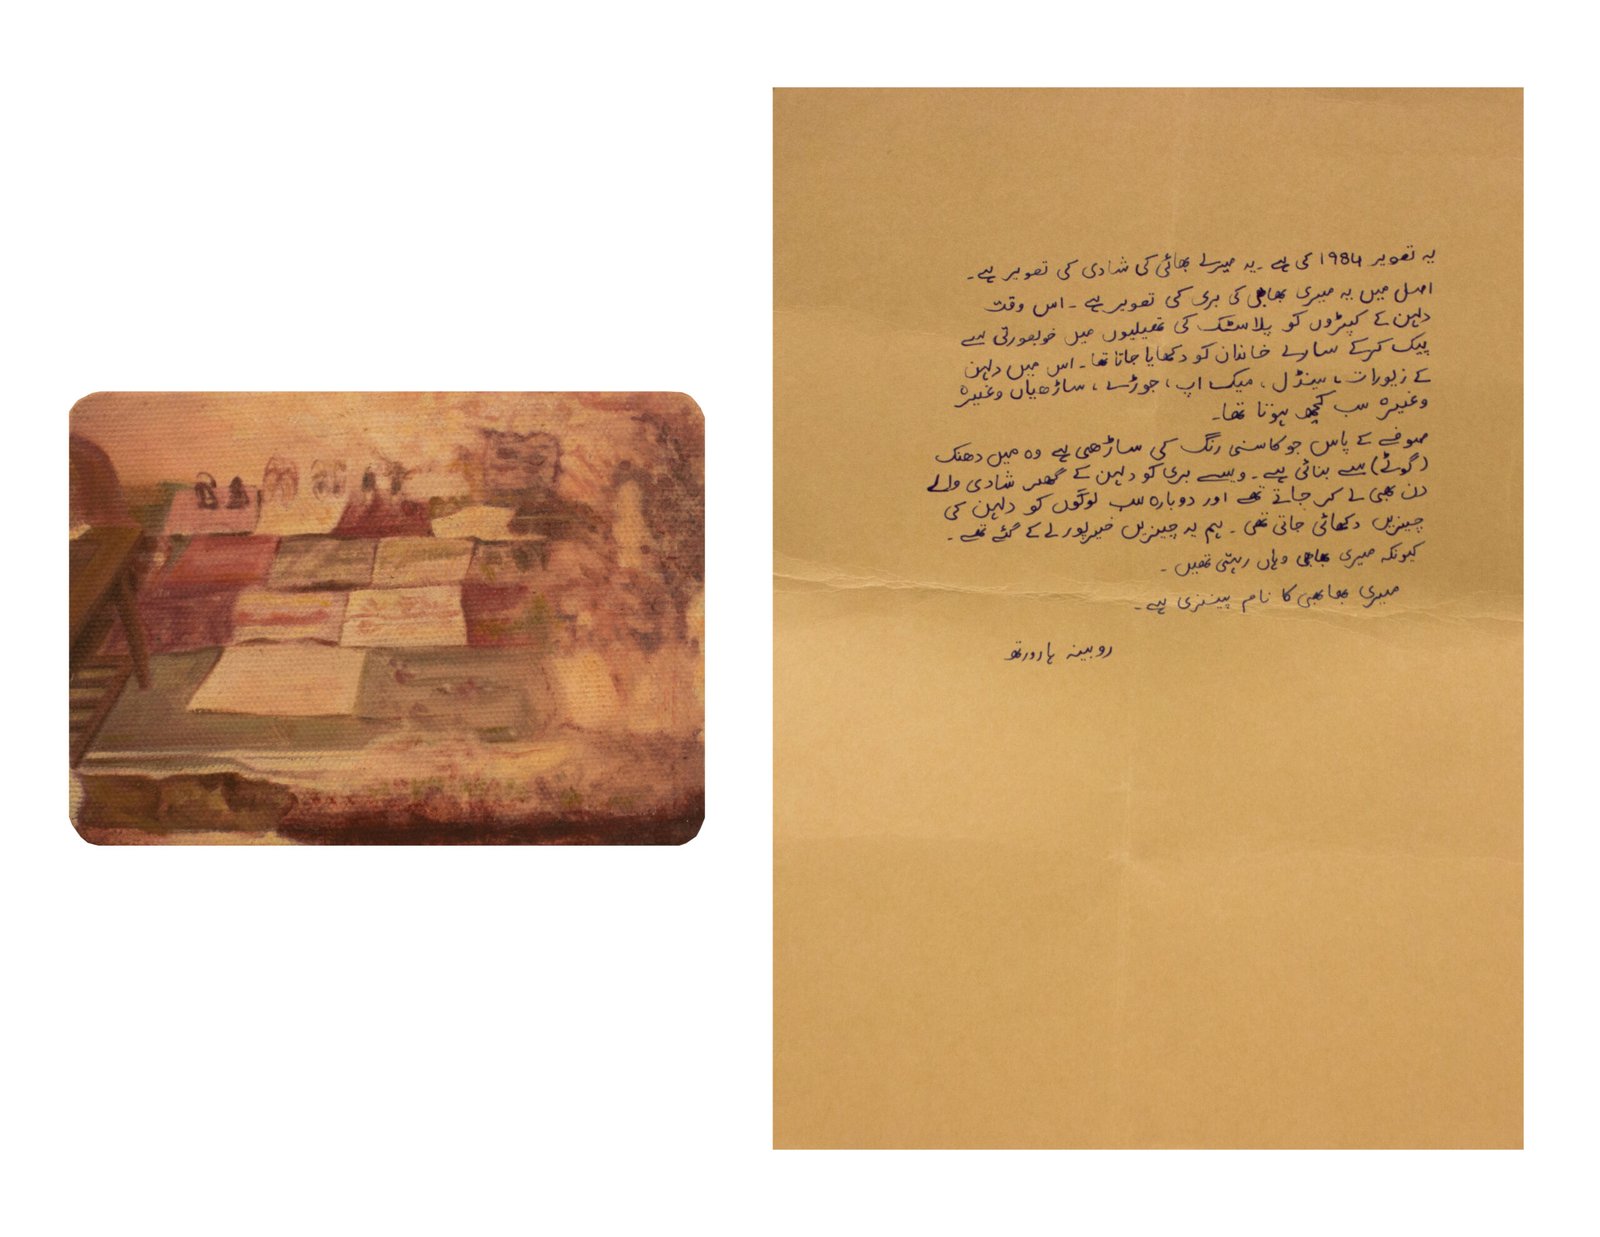 یہ تصویر 1984 کی ہے ۔ یہ میرے بھائی کی شادی کی تصویر ہے۔
اصل میں یہ میری بھابھی کی بری کی تصویر ہے ۔ اس وقت
دلہن کے کپڑوں کو پلاسٹک کی تھیلیوں میں خوبصورتی سے
پیک کرکے سارے خاندان کو دکھایا جاتا تھا۔ اس میں دلہن
کے زیورات ، سینڈل ، میک اپ ، جوڑے ، ساڑھیاں وغیرہ
وغیرہ سب کچھ ہوتا تھا۔
صوفے کے پاس جو کاسنی رنگ کی ساڑھی ہے وہ میں دھنک
(گوٹے) سے بنائی ہے ۔ ویسے بری کو دلہن کے گھر شادی والے
دن بھی لے کر جاتے تھے اور دوبارہ سب لوگوں کو دلہن کی
چیزیں دکھائی جاتی تھی ۔ ہم یہ چیزیں خیرپور لے کے گئے تھے ۔
کیونکہ میری بھابھی وہاں رہتی تھیں ۔
میری بھابھی کا نام ہے۔
روبینہ